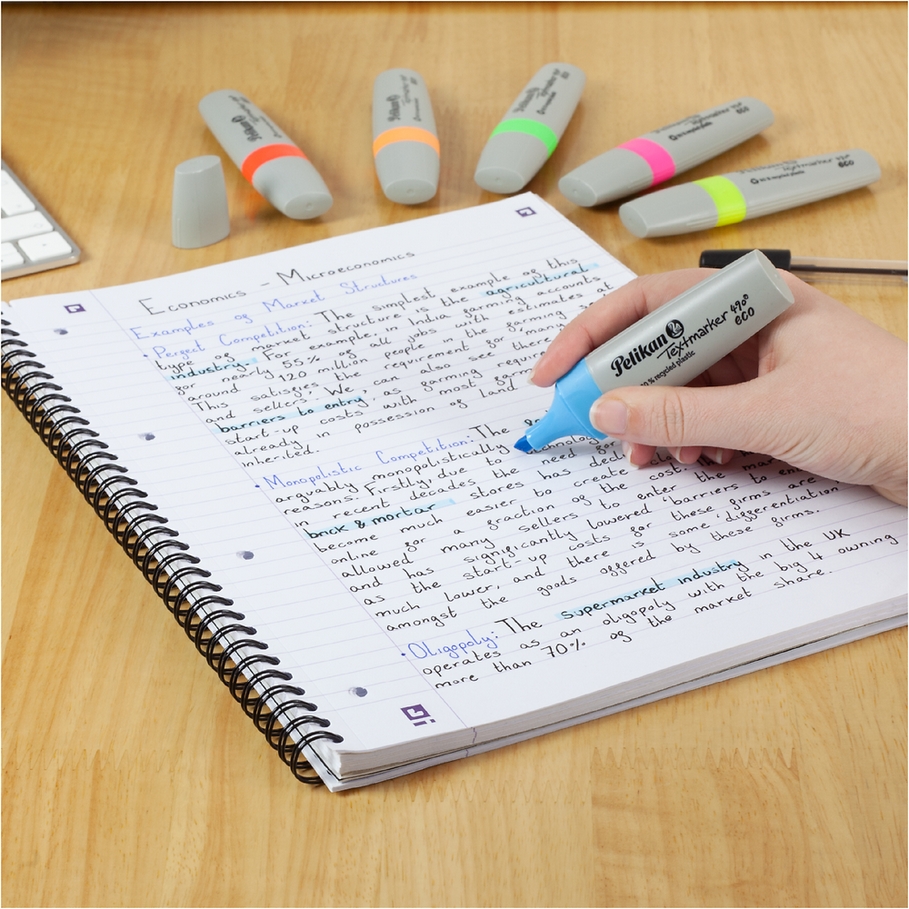 Pelikan
Textmarker 490
eco
Pelikan
Pelikan
Textmarker 490
eco
Textmarker 490
eco
Economics - Microeconomics
Examples of Market Structures
• Perfect Competition: The simplest example of this
type of market structure is the agricultural
industry. For example, in India farming accounts
for nearly 55% of all jobs with estimates at
around 120 million people in the farming
This satisfies the requirement for 'many
and sellers'. We can also see there
barriers to entry as farming require
start-up costs with most
already in possession of land
inherited.
• Monopolistic Competition: The
arguably monopolistically
reasons. Firstly, due to technolog
in recent decades the need for
brick & mortar stores has decl
become much easier to create
online for a fraction of the cost.
allowed many sellers to enter the mar
and has significantly lowered 'barriers to en
as the start-up costs for these firms are
much lower, and there is some differentiation
amongst the goods offered by these firms.
• Oligopoly: The supermarket industry in the UK
operates as an oligopoly with the big 4 owning
more than 70% of the market share.
Pelikan
Textmarker 490®
eco
% recycled plastic